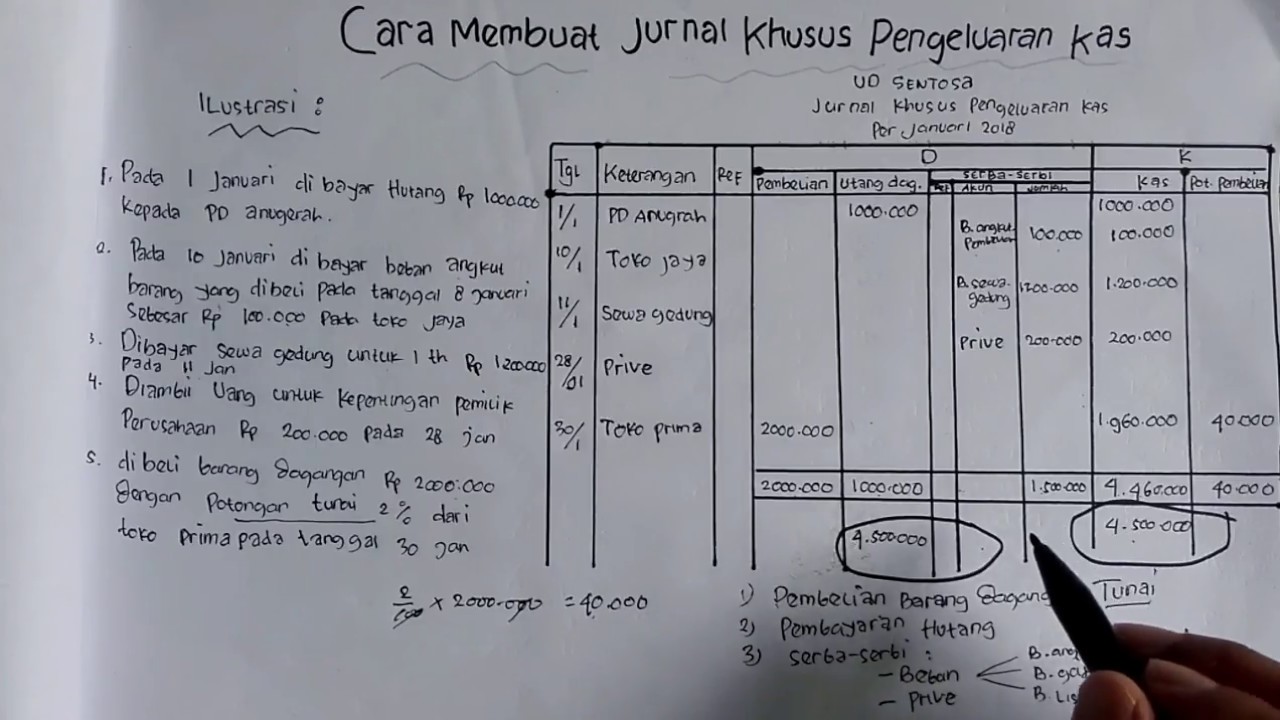 Cara Membuat Jurnal Khusus Pengeluaran Kas
ILustrasi :
1. Pada 1 Januari di bayar Hutang Rp 1000.000
kepada PD anugerah.
2. Pada 10 Januari di bayar beban angkut
barang yang dibeli pada tanggal 8 januari
sebesar Rp 100.000 Pada toko jaya
3. Dibayar sewa gedung untuk 1 th Rp 1200.000
Pada 11 Jan
4. Diambil Uang untuk kepentingan pemilik
Perusahaan Rp 200.000 pada 28 jan
5. di beli barang dagangan Rp 2000.000
dengan Potongan tunai 2% dari
toko prima pada tanggal 30 jan
2/100 × 2000.000 = 40.000
UD SENTOSA
Jurnal Khusus Pengeluaran Kas
Per Januari 2018
Tgl Keterangan Ref D K
Pembelian Utang dag. Serba-serbi Kas Pot. Pembelian
Ref Akun Jumlah
1/1 PD Anugrah 1000.000 1000.000
10/1 Toko jaya B. angkut Pembelian 100.000 100.000
11/1 Sewa gedung B. sewa gedung 1200.000 1.200.000
28/01 Prive Prive 200.000 200.000
30/1 Toko prima 2000.000 1.960.000 40.000
2000.000 1000.000 1.500.000 4.460.000 40.000
4.500.000 4.500.000
1) Pembelian Barang dagang Tunai
2) Pembayaran Hutang
3) Serba-serbi :
- Beban
B. ang
B. ga
B. Lis
- Prive